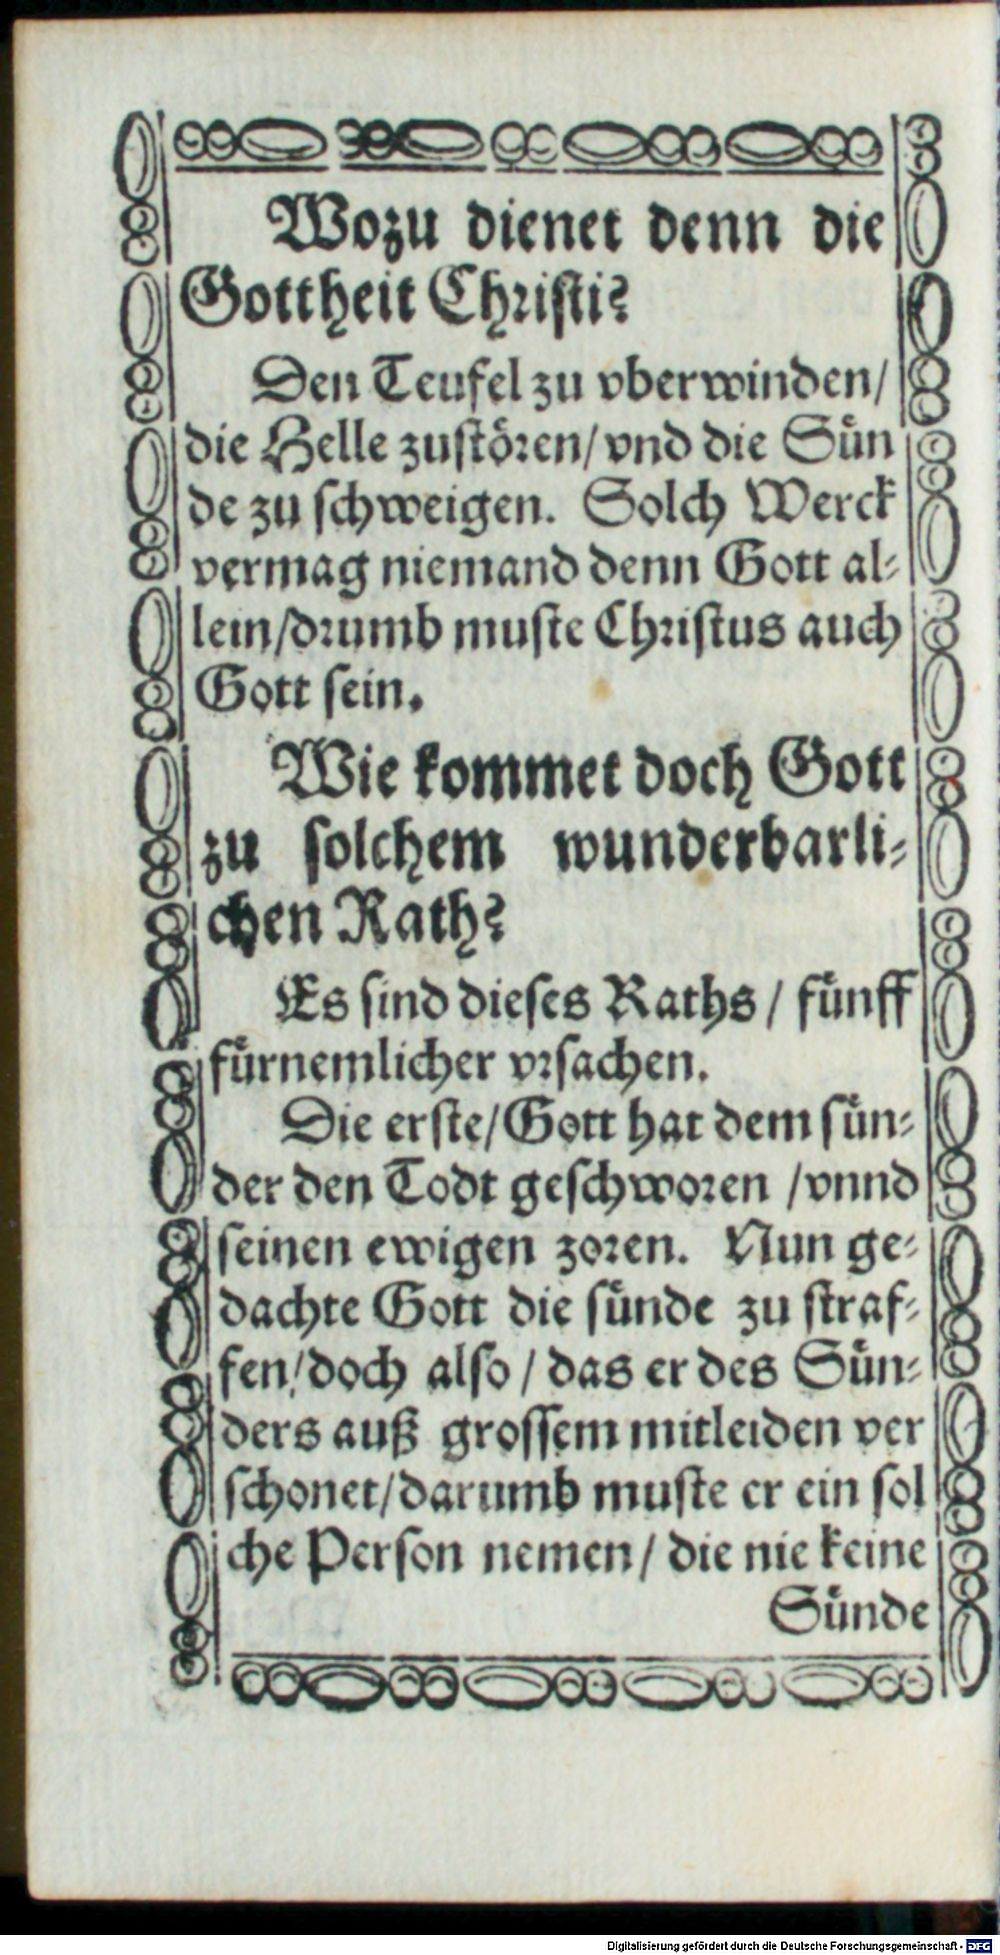 Wozu dienet denn die
Gottheit Christi?
Den Teufel zu vberwinden/
die Helle zustören/ vnd die Sün
de zu schweigen. Solch Werck
vermag niemand denn Gott al-
lein/drumb muste Christus auch
Gott sein.
Wie kommet doch Gott
zu solchem wunderbarli-
chen Rath?
Es sind dieses Raths / fünff
fürnemlicher vrsachen.
Die erste/Gott hat dem sün-
der den Todt geschworen /vnnd
seinen ewigen zoren. Nun ge-
dachte Gott die sünde zu straf-
fen/doch also / das er des Sün-
ders auß grossem mitleiden ver
schonet/darumb muste er ein sol
che Person nemen/ die nie keine
Sünde
Digitalisierung gefördert durch die Deutsche Forschungsgemeinschaft - DFG